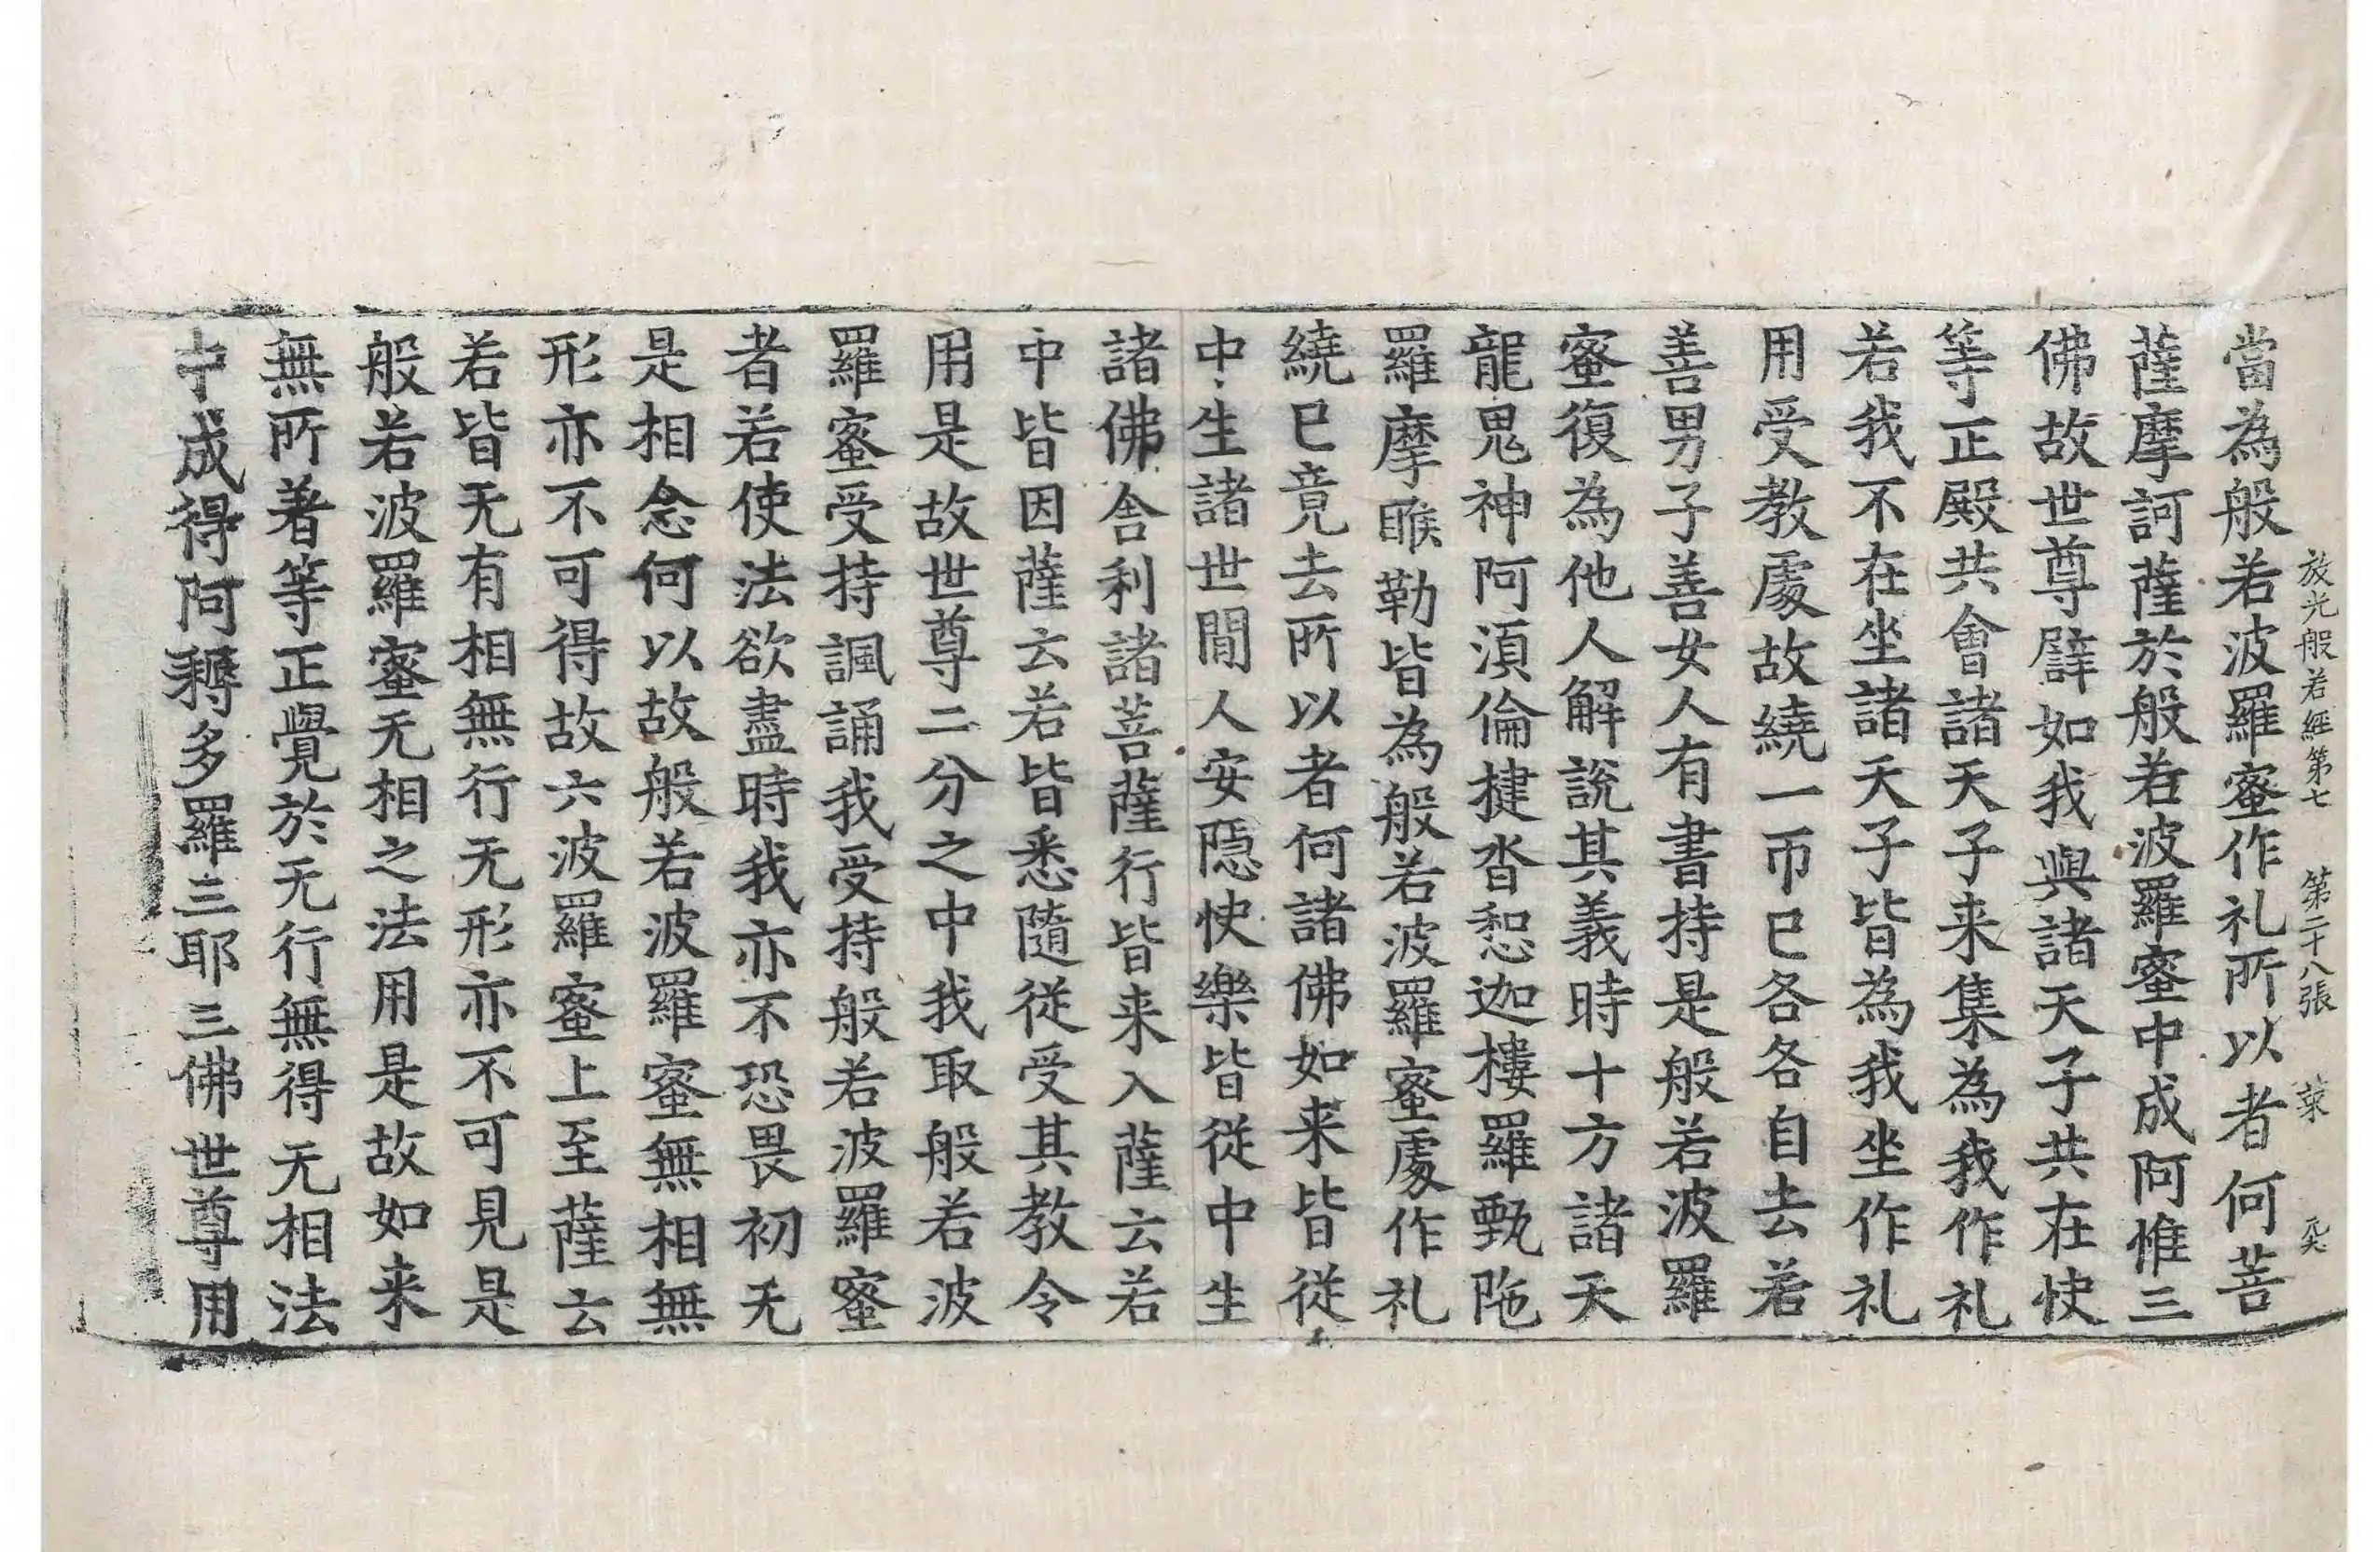 放光般若經第七　第二十八張　菜
當為般若波羅蜜作礼所以者何菩
薩摩訶薩於般若波羅蜜中成阿惟三
佛故世尊譬如我與諸天子共在快
等正殿共會諸天子来集為我作礼
若我不在坐諸天子皆為我坐作礼
用受教處故繞一帀已各各自去若
善男子善女人有書持是般若波羅
蜜復為他人解說其義時十方諸天
龍鬼神阿須倫揵沓惒迦樓羅甄陁
羅摩睺勒皆為般若波羅蜜處作礼
繞已竟去所以者何諸佛如来皆從
中生諸世間人安隱快樂皆從中生
諸佛舍利諸菩薩行皆来入薩云若
中皆因薩云若皆悉隨從受其教令
用是故世尊二分之中我取般若波
羅蜜受持諷誦我受持般若波羅蜜
者若使法欲盡時我亦不恐畏初无
是相念何以故般若波羅蜜無相無
形亦不可得故六波羅蜜上至薩云
若皆无有相無行无形亦不可見是
般若波羅蜜无相之法用是故如来
無所著等正覺於无行無得无相法
中成得阿耨多羅三耶三佛世尊用